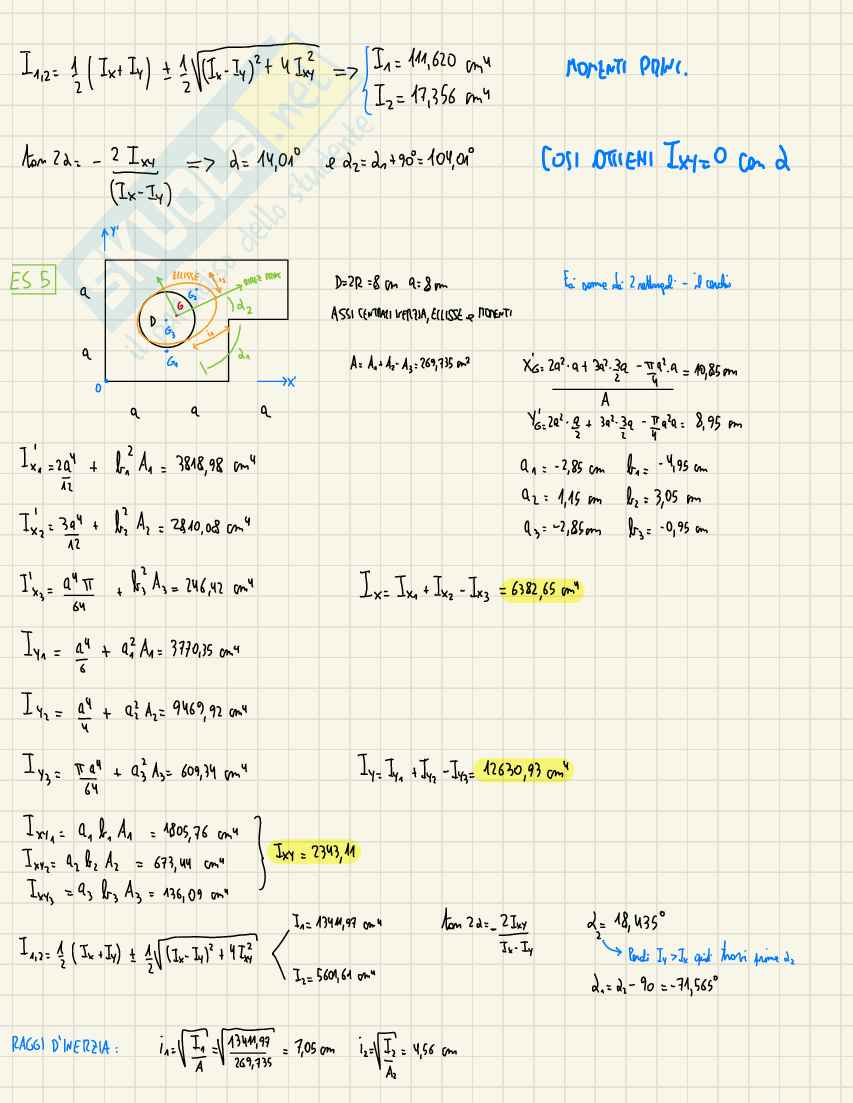 I₁,₂ = 1/2 (Ix + Iy) ± 1/2 √((Ix - Iy)² + 4 Ixy²) => { I₁ = 111,620 cm⁴ MOMENTI PRINC.
I₂ = 17,356 cm⁴
tan 2α = - 2 Ixy / (Ix - Iy) => α = 14,01° e α₂ = α₁ + 90° = 104,01° COSI OTTIENI Ixy = 0 con α
SKUOLA.net
il dello studente
ES 5
Y'
a
a
ELLISSE
DIREZ PRINC
D
G
G₂
G₃
G₁
α₂
α₁
O
X'
a a a
D = 2R = 8 cm a = 8 cm
ASSI CENTRALI INERZIA, ELLISSE e MOMENTI
A = A₁ + A₂ - A₃ = 269,735 cm²
2 rettangoli - il cerchio
X'G = 2a²·a + 3a²·3a/2 - π/4 a²·a / A = 10,85 cm
Y'G = 2a²·a/2 + 3a²·3a/2 - π/4 a²a = 8,95 cm
a₁ = -2,85 cm b₁ = -4,95 cm
a₂ = 1,15 cm b₂ = 3,05 cm
a₃ = -2,85 cm b₃ = -0,95 cm
I'x₁ = 2a⁴/12 + b₁² A₁ = 3818,98 cm⁴
I'x₂ = 3a⁴/12 + b₂² A₂ = 2810,08 cm⁴
I'x₃ = a⁴π/64 + b₃² A₃ = 246,42 cm⁴
Ix = Ix₁ + Ix₂ - Ix₃ = 6382,65 cm⁴
Iy₁ = a⁴/6 + a₁² A₁ = 3770,35 cm⁴
Iy₂ = a⁴/4 + a₂² A₂ = 9469,92 cm⁴
Iy₃ = πa⁴/64 + a₃² A₃ = 609,34 cm⁴
Iy = Iy₁ + Iy₂ - Iy₃ = 12630,93 cm⁴
Ixy₁ = a₁ b₁ A₁ = 1805,76 cm⁴
Ixy₂ = a₂ b₂ A₂ = 673,44 cm⁴
Ixy₃ = a₃ b₃ A₃ = 136,09 cm⁴
Ixy = 2343,11
I₁,₂ = 1/2 (Ix + Iy) ± 1/2 √((Ix - Iy)² + 4 Ixy²)
I₁ = 13411,97 cm⁴
I₂ = 5601,61 cm⁴
tan 2α = - 2Ixy / Ix - Iy
α₂ = 18,435°
Perché Iy > Ix quindi trovi prima α₂
α₁ = α₂ - 90 = -71,565°
RAGGI D'INERZIA: i₁ = √(I₁/A) = √(13411,97/269,735) = 7,05 cm i₂ = √(I₂/A₂) = 4,56 cm